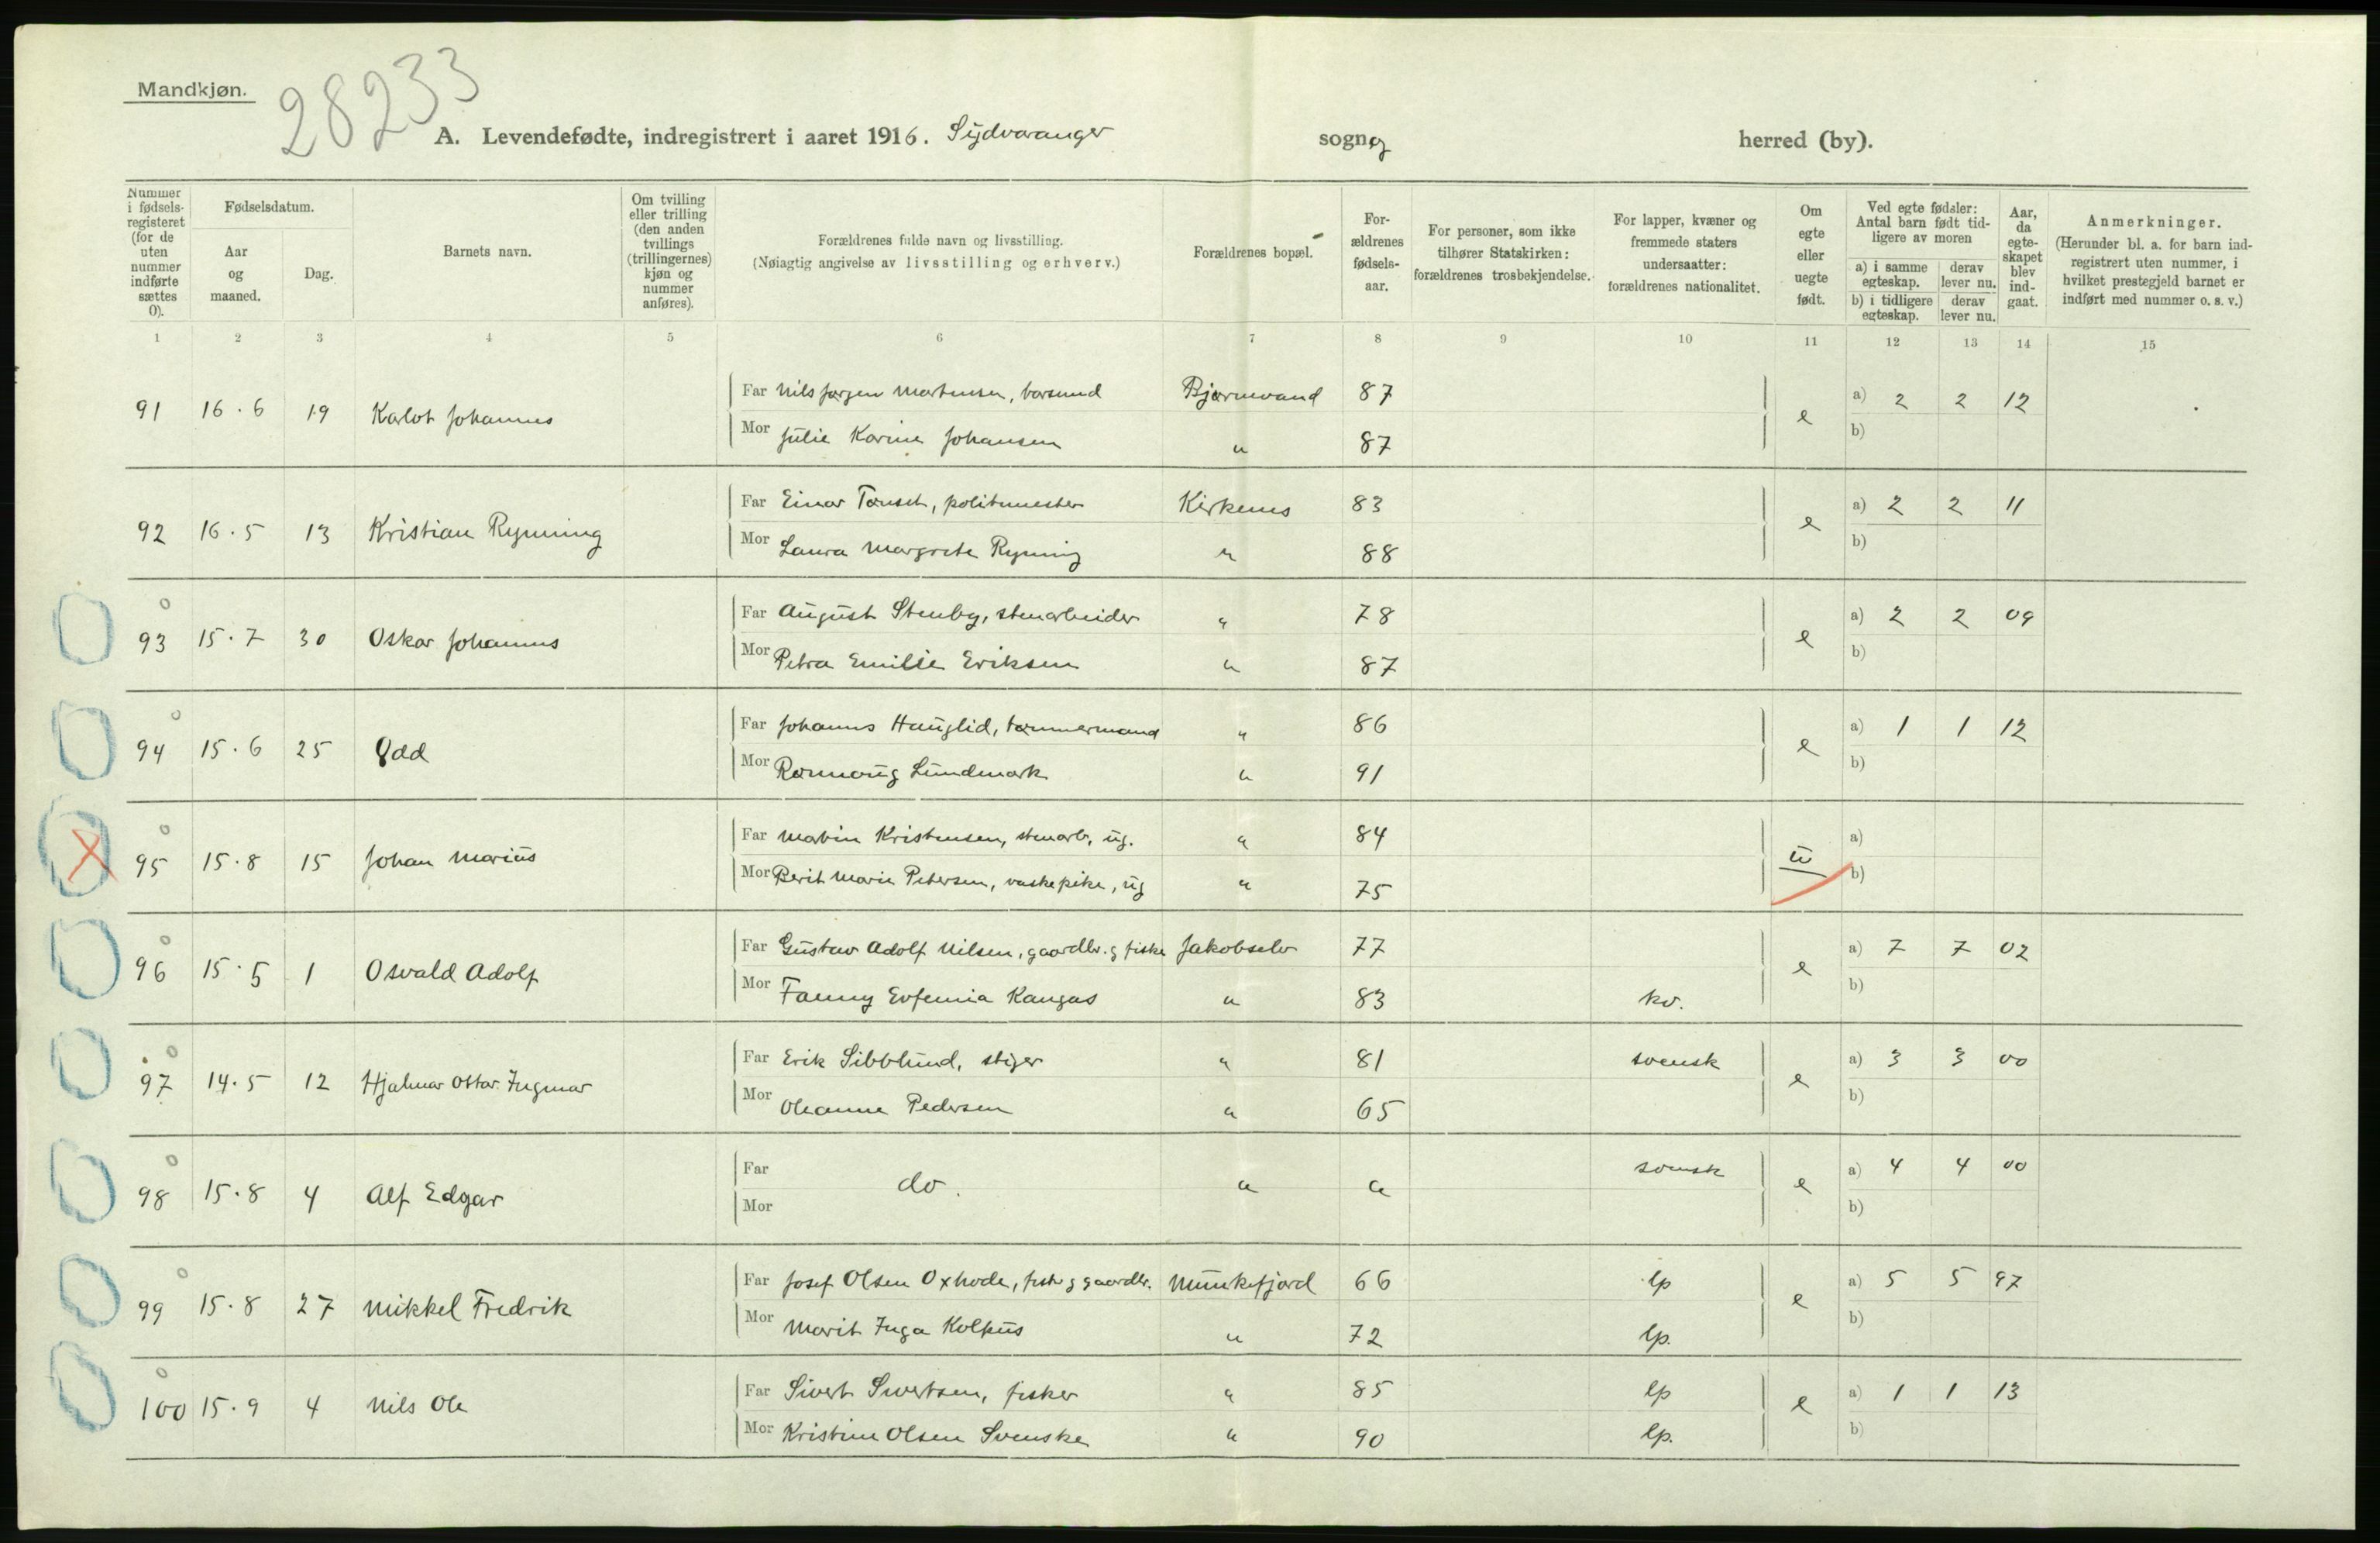 Mandkjøn.
28233
A. Levendefødte, indregistrert i aaret 1916. Sydvaranger sogn og herred (by).
Nummer i fødsels-registeret (for de uten nummer indførte sættes 0).
Fødselsdatum.
Aar og maaned.
Dag.
Barnets navn.
Om tvilling eller trilling (den anden tvillings (trillingernes) kjøn og nummer anføres).
Forældrenes fulde navn og livsstilling.
(Nøiagtig angivelse av livsstilling og erhverv.)
Forældrenes bopæl.
For-ældrenes fødsels-aar.
For personer, som ikke tilhører Statskirken: forældrenes trosbekjendelse.
For lapper, kvæner og fremmede staters undersaatter: forældrenes nationalitet.
Om egte eller uegte født.
Ved egte fødsler: Antal barn født tid-ligere av moren
a) i samme egteskap. derav lever nu.
b) i tidligere egteskap. derav lever nu.
Aar, da egte-skapet blev ind-gaat.
Anmerkninger.
(Herunder bl. a. for barn ind-registrert uten nummer, i hvilket prestegjeld barnet er indført med nummer o. s. v.)
1 2 3 4 5 6 7 8 9 10 11 12 13 14 15
91 16.6 19 Karlot Johannes
Far Nils Jørgen Martensen, Bjørnevand 87 e a) 2 2 12
Mor Julie Karine Johansen " 87 b)
92 16.5 13 Kristian Rynning
Far Einar Tønset, politimester Kirkenes 83 e a) 2 2 11
Mor Laura Margrete Rynning " 88 b)
0
93 15.7 30 Oskar Johannes
Far August Stenby, stenarbeider " 78 e a) 2 2 09
Mor Petra Emilie Eriksen " 87 b)
0
94 15.6 25 Odd
Far Johannes Hauglid, tømmermand " 86 e a) 1 1 12
Mor Rønnaug Lundmark " 91 b)
0
95 15.8 15 Johan Marius
Far Martin Kristensen, stenarb, ug. " 84 u a)
Mor Berit Marie Petersen, vaskepike, ug " 75 b)
0
96 15.5 1 Osvald Adolf
Far Gustav Adolf Nilsen, gaardbr. og fisker Jakobselv 77 e a) 7 7 02
Mor Fanny Evfemia Kangas " 83 kv. b)
0
97 14.5 12 Hjalmar Ottar Ingmar
Far Erik Sibblund, stiger " 81 svensk e a) 3 3 00
Mor Oleanne Pedersen " 65 b)
0
98 15.8 4 Alf Edgar
Far do. " " svensk e a) 4 4 00
Mor b)
0
99 15.8 27 Mikkel Fredrik
Far Josef Olsen Oxhode, fisk og gaardbr. Munkefjord 66 lp e a) 5 5 97
Mor Marit Inga Kolpus " 72 lp. b)
0
100 15.9 4 Nils Ole
Far Sivert Sivertsen, fisker " 85 lp e a) 1 1 13
Mor Kristine Olsen Svenske " 90 lp. b)